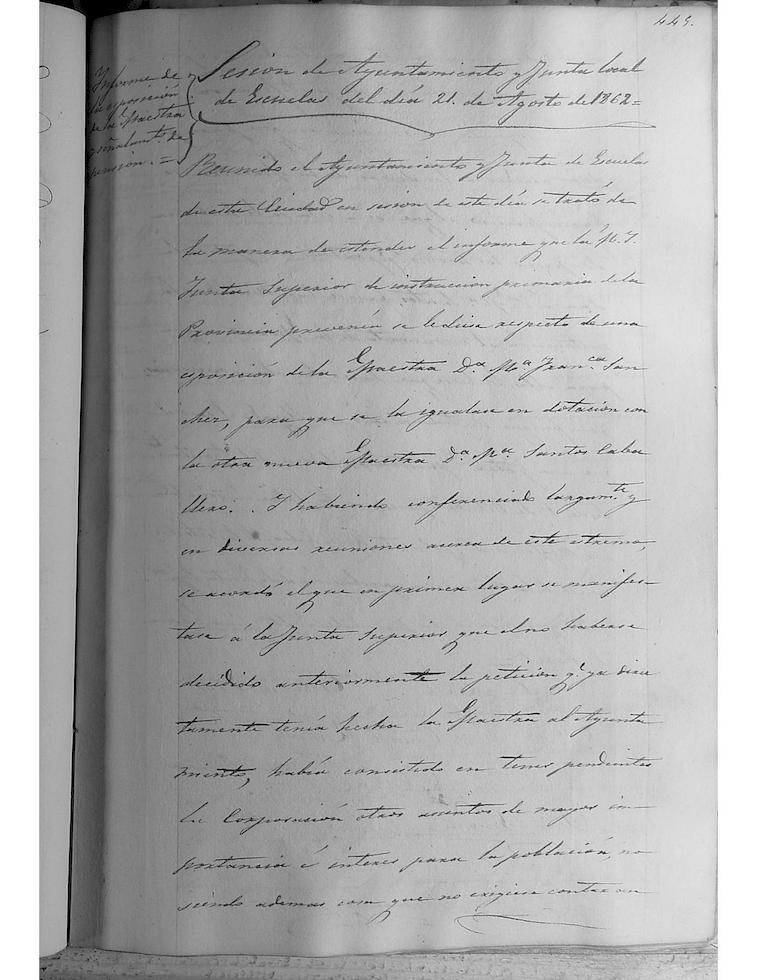 449.
Informe de
la esposición
de la Maestra
y señalam.to de
pensión. =
Sesion de Ayuntamiento y Junta local
de Escuelas del día 21. de Agosto de 1862 =
Reunido el Ayuntamiento y Junta de Escuelas
de esta Ciudad en sesion de este día se trató de
la manera de estender el informe que la M. I.
Junta Superior de instruccion primaria de la
Provincia prevenía se le diese respecto de una
esposición de la Maestra D.ª M.ª Fran.ca San
chez, para que se la igualase en dotación con
la otra nueva Maestra D.ª M.ª Santos Caba
llero. . Y habiendo conferenciado largam.te y
en diversas reuniones acerca de este estremo,
se acordó el que en primer lugar se manifes-
tase á la Junta Superior que el no haberse
decidido anteriormente la petición q.e ya direc
tamente tenía hecha la Maestra al Ayunta
miento, había consistido en tener pendientes
la Corporación otros asuntos de mayor im-
portancia é interes para la población, no
siendo ademas cosa que no exigiera contar con